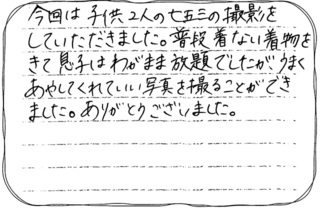 今回は子供2人の七五三の撮影を
していただきました。普段着ない着物を
きて息子はわがまま放題でしたが、うまく
あやしてくれていい写真を撮ることができ
ました。ありがとうございました。